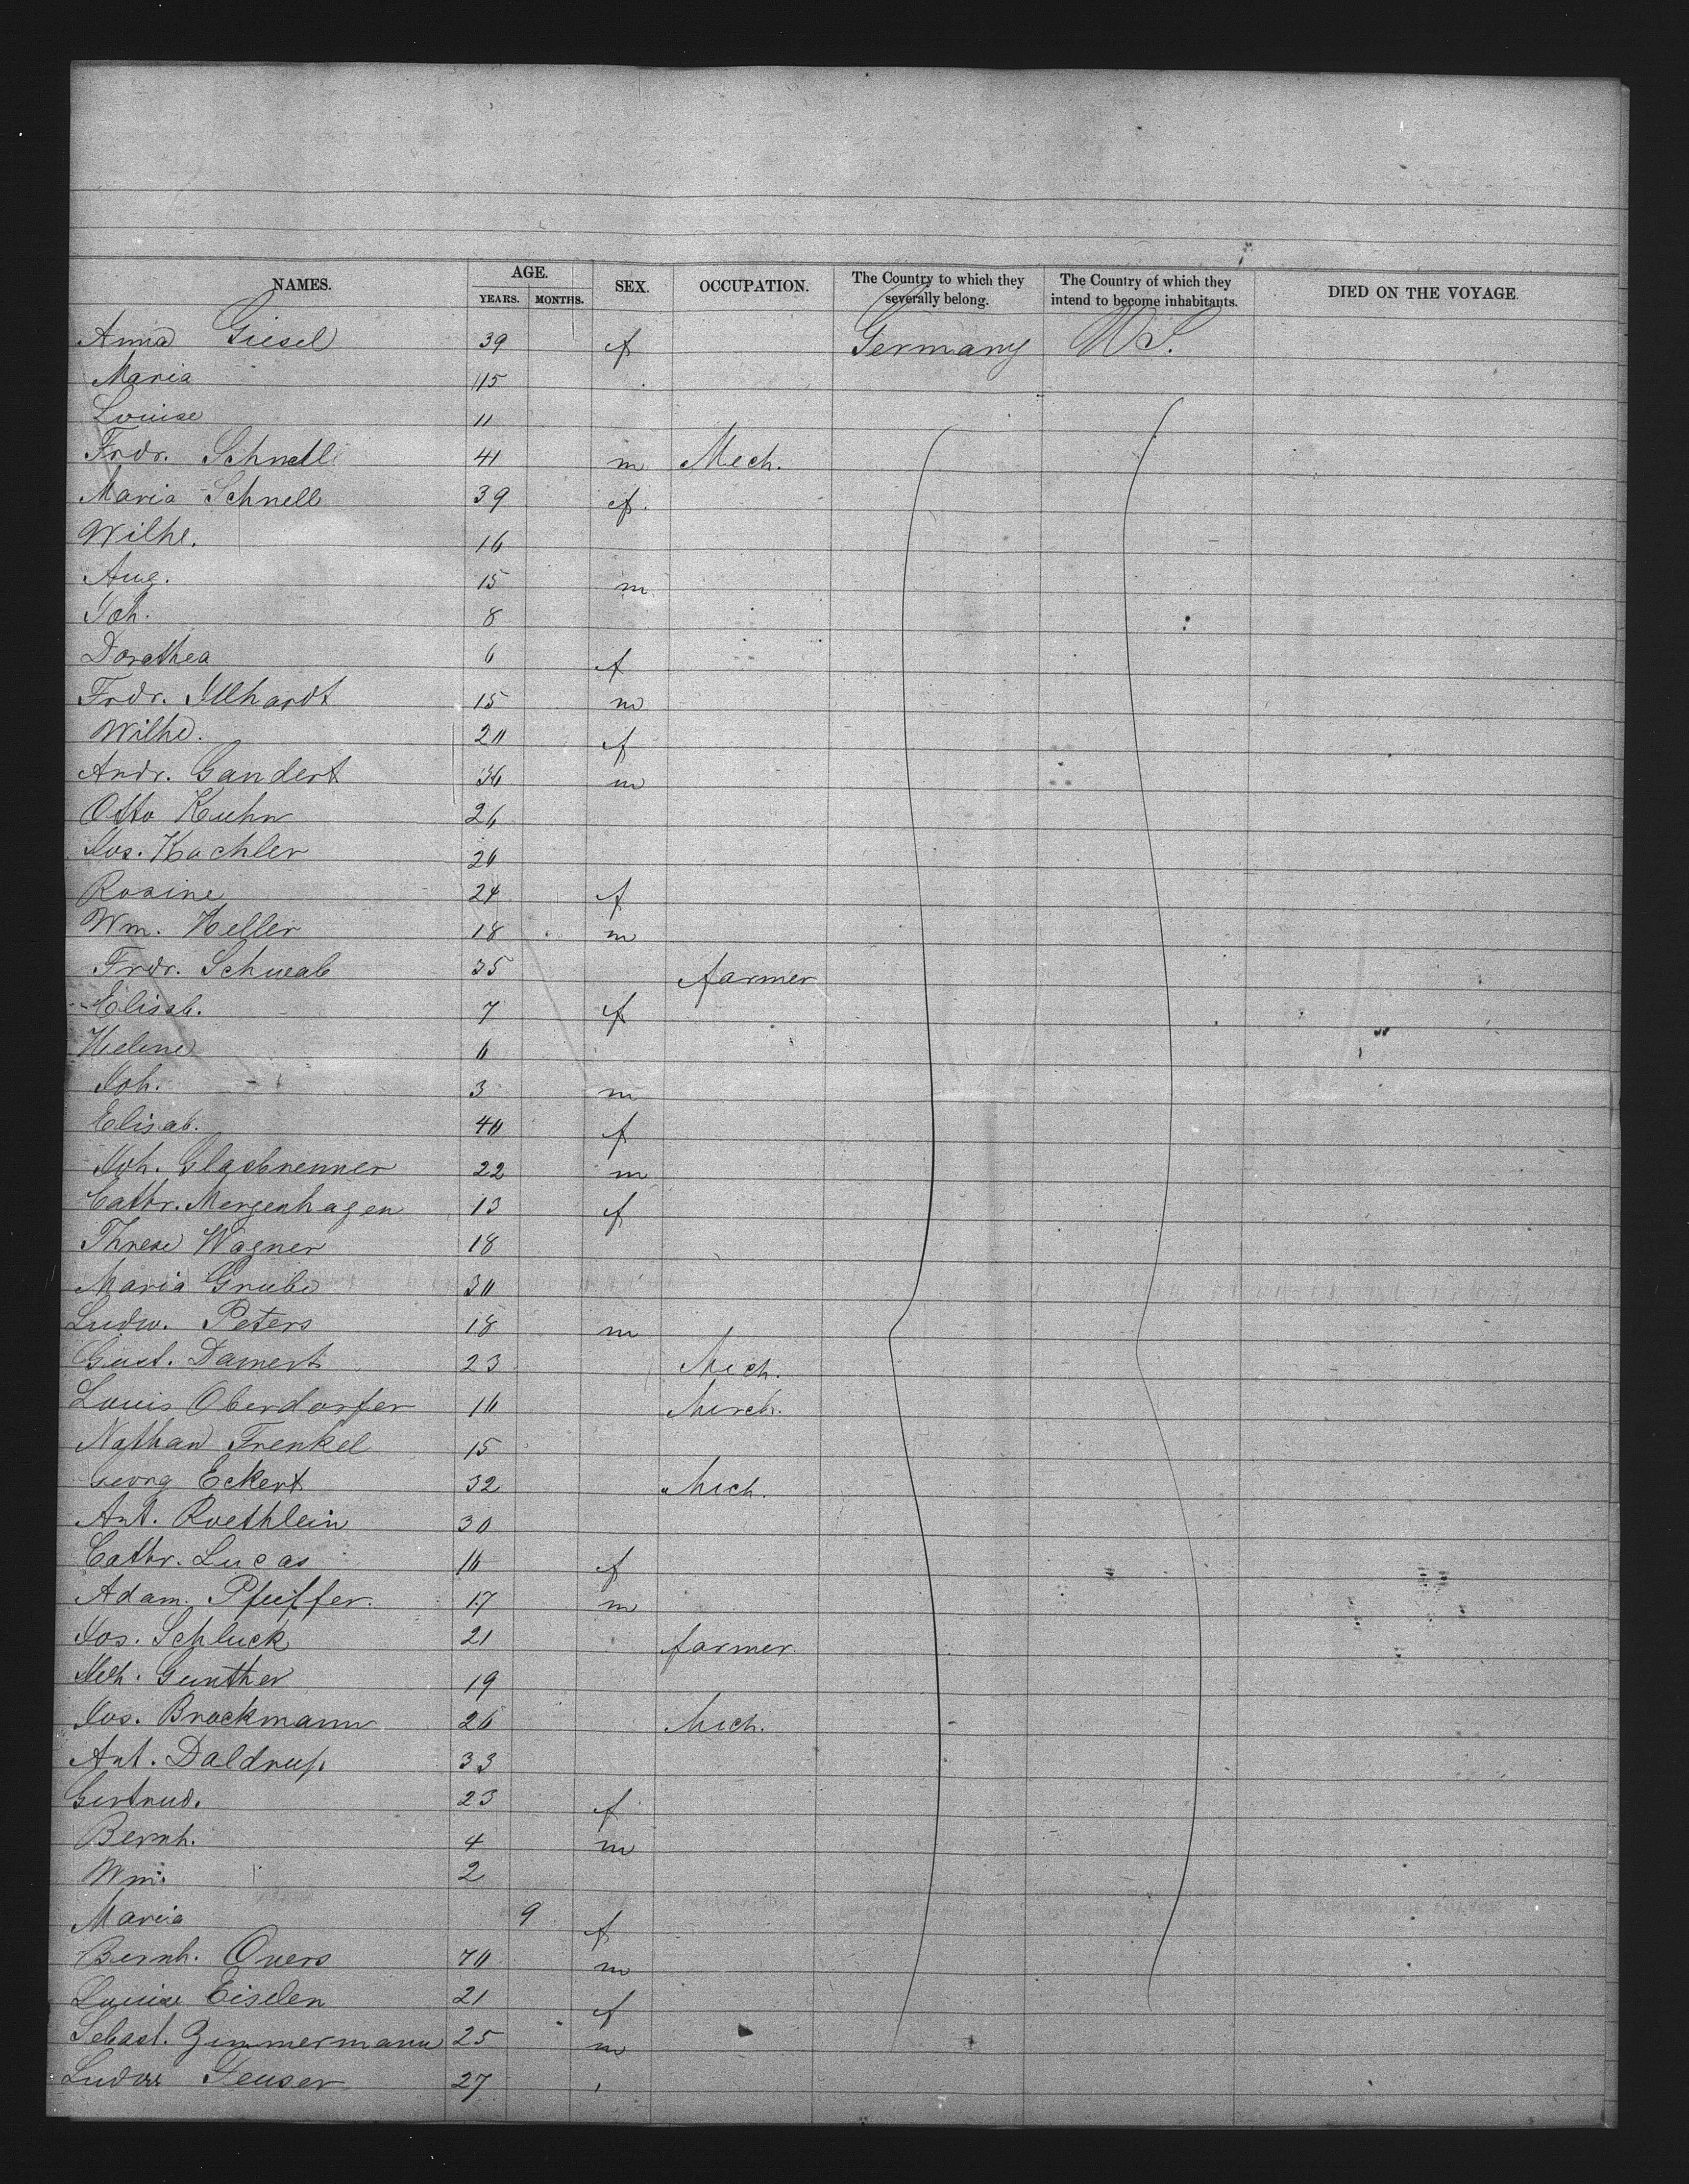 NAMES. AGE. YEARS. MONTHS. SEX. OCCUPATION. The Country to which they severally belong. The Country of which they intend to become inhabitants. DIED ON THE VOYAGE.
Anna Giesel 39 f Germany U.S.
Maria 15
Louise 11
Frdr. Schnell 41 m Mech.
Maria Schnell 39 f.
Wilhe. 16
Aug. 15 m
Joh. 8
Dorothea 6 f
Frdr. Illhardt 15 m
Wilhe. 20 f
Andr. Gandert 36 m
Otto Kuhn 26
Jos. Kachler 26
Rosine 24 f
Wm. Heller 18 m
Frdr. Schwab 35 farmer
Elisab. 7 f
Helene 6
Joh. 3 m
Elisab. 40 f
Joh. Glasbrenner 22 m
Cathr. Mergenhagen 13 f
Threse Wagner 18
Maria Grube 30
Ludw. Peters 18 m
Gust. Damert 23 Mech.
Louis Oberdorfer 16 Merch.
Nathan Frenkel 15
Georg Eckert 32 Mech.
Ant. Roethlein 30
Cathr. Lucas 16 f
Adam Pfeiffer. 17 m
Jos. Schluck 21 farmer
Gunther 19
Jos. Brockmann 26 Mech.
Ant. Daldrup. 33
Gertrud. 23 f
Bernh. 4 m
Wm. 2
Maria 9 f
Bernh. Overs 70 m
Louise Eiselen 21 f
Sebast. Zimmermann 25 m
Ludw. 27